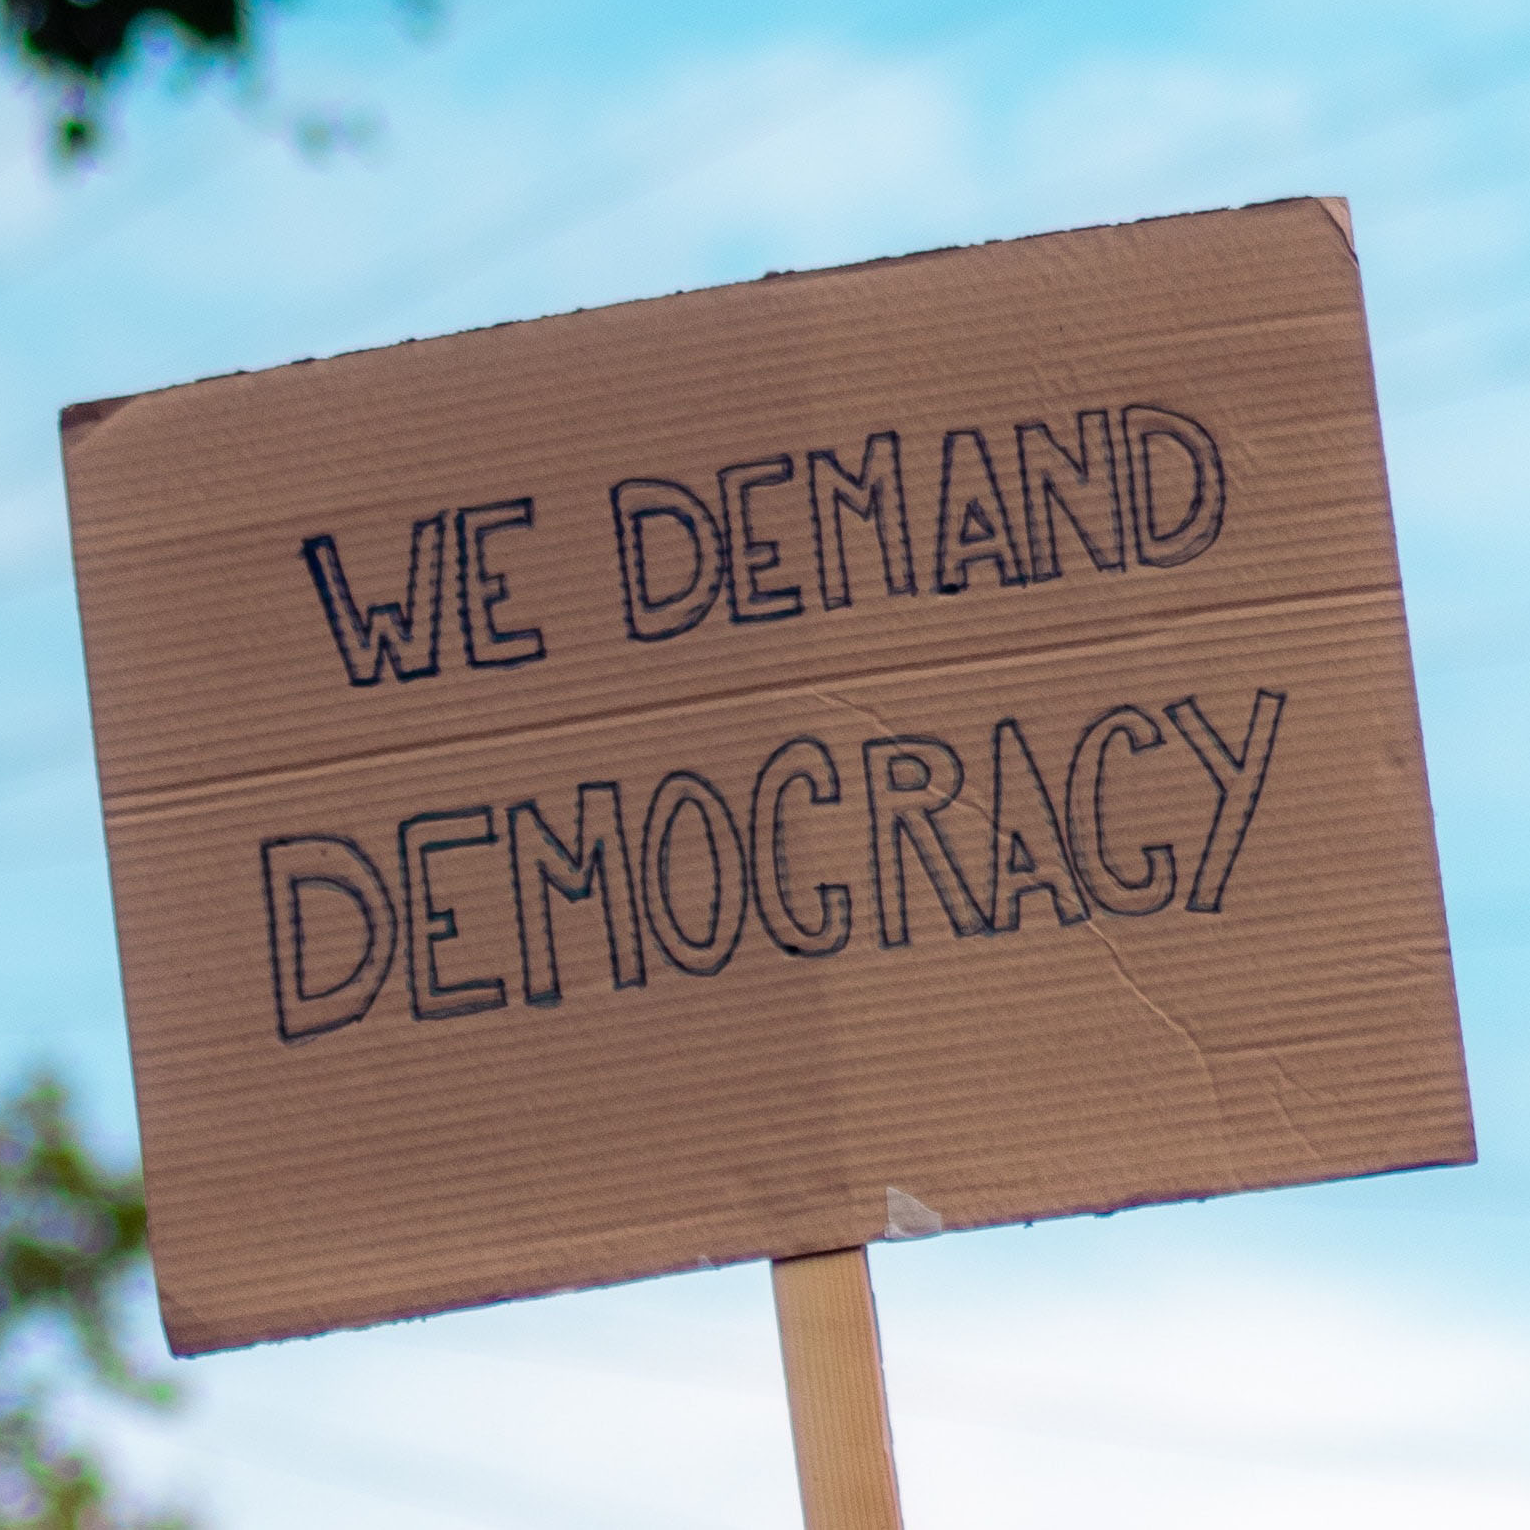 WE DEMAND
DEMOCRACY